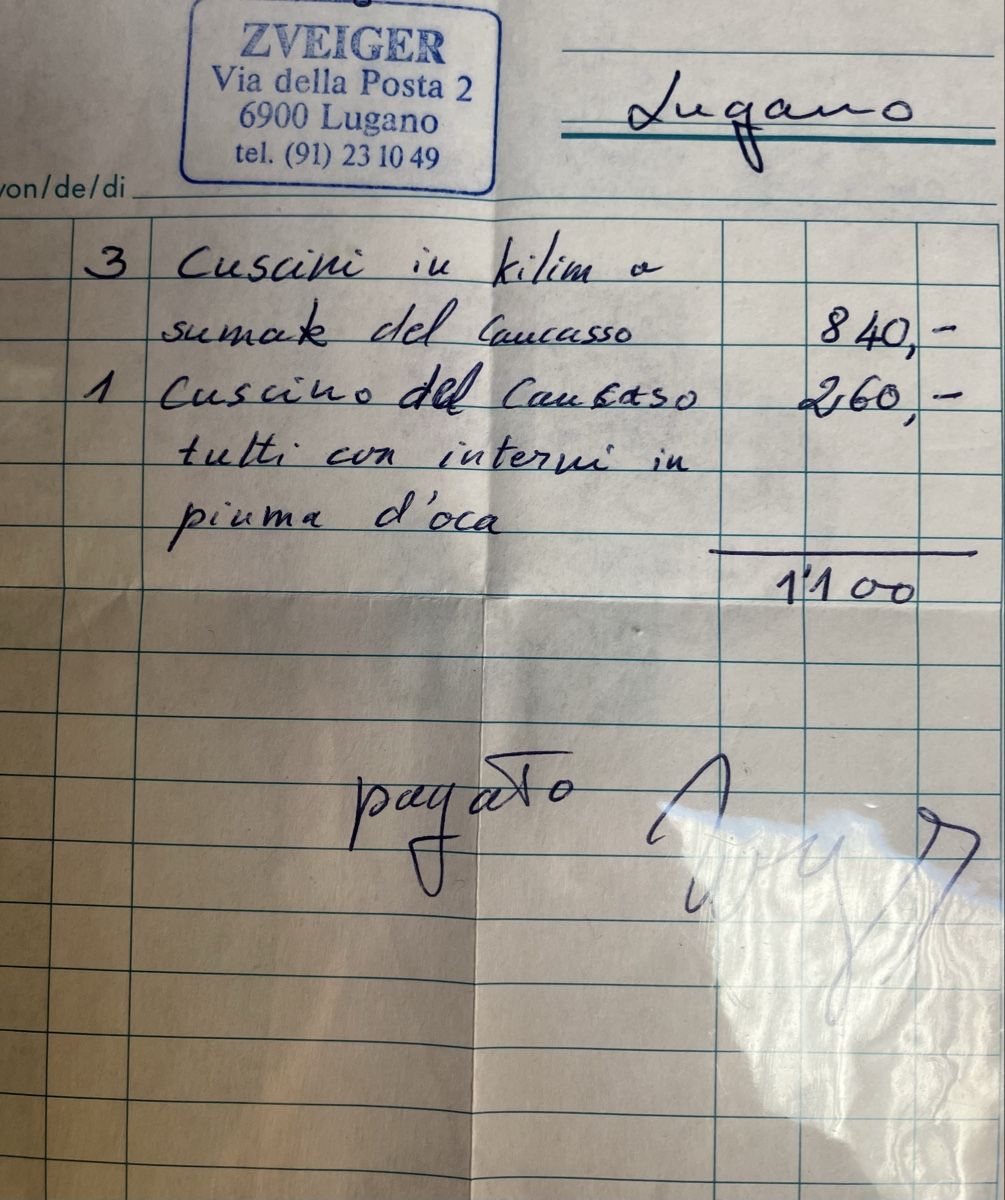 ZVEIGER
Via della Posta 2
6900 Lugano
tel. (91) 23 10 49
Lugano
von/de/di
3 Cuscini in kilim a
sumak del Caucasso 840,-
1 Cuscino del Caucaso 260,-
tutti con interni in
piuma d'oca
1'100
pagato